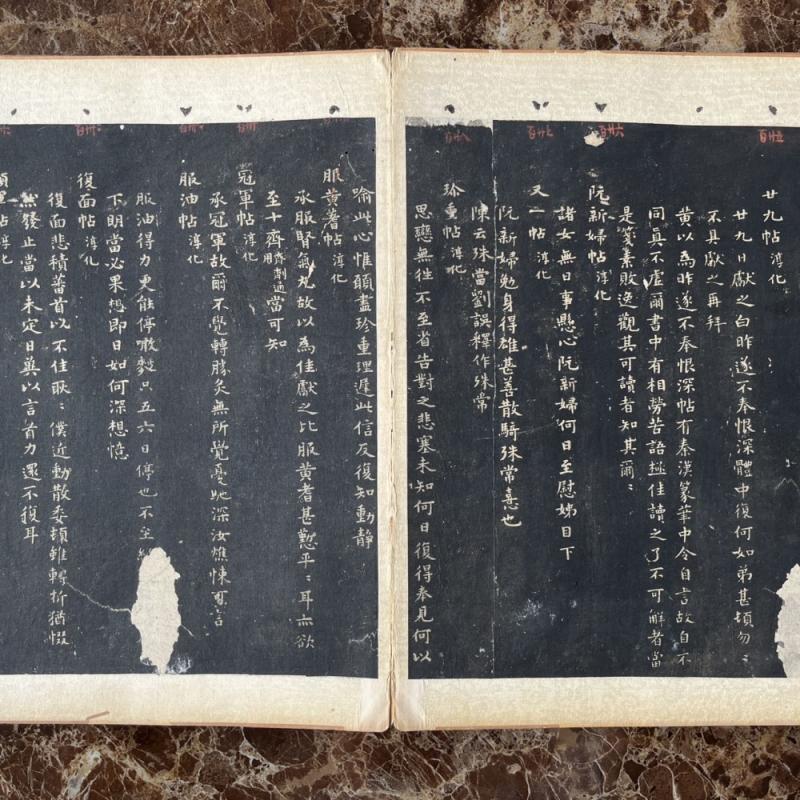 百廿五
廿九帖 淳化
廿九日獻之白昨遂不奉恨深體中復何如弟甚頓勿〻
不具獻之再拜
黃以為昨遂不奉恨深帖有秦漢篆筆中令自言故自不
同真不虛爾書中有相勞苦語極佳讀之了不可解者當
是箋素敗逸觀其可讀者知其爾〻
百廿六
阮新婦帖 淳化
諸女無日事懸心阮新婦何日至慰姊目下
百廿七
又一帖 淳化
阮新婦勉身得雄甚善散騎殊常憙也
陳云殊當劉誤釋作殊常
百廿八
珍重帖 淳化
思戀無往不至省告對之悲塞未知何日復得奉見何以
喻此心惟願盡珍重理遲此信反復知動靜
服黃耆帖 淳化
承服腎氣丸故以為佳獻之比服黃耆甚懃平〻耳亦欲
至十齊 用齊劑通 當可知
冠軍帖 淳化
承冠軍故爾不覺轉勝灸無所覺憂馳深汝燋悚可言
服油帖 淳化
服油得力更能停噉麪只五六日停也不至
下明當必果想即日如何深想憶
復面帖 淳化
復面悲積普首以不佳耿〻僕近動散委頓雖轉折猶惙
無幾止當以未定日與以言首力還不復耳
帖 淳化